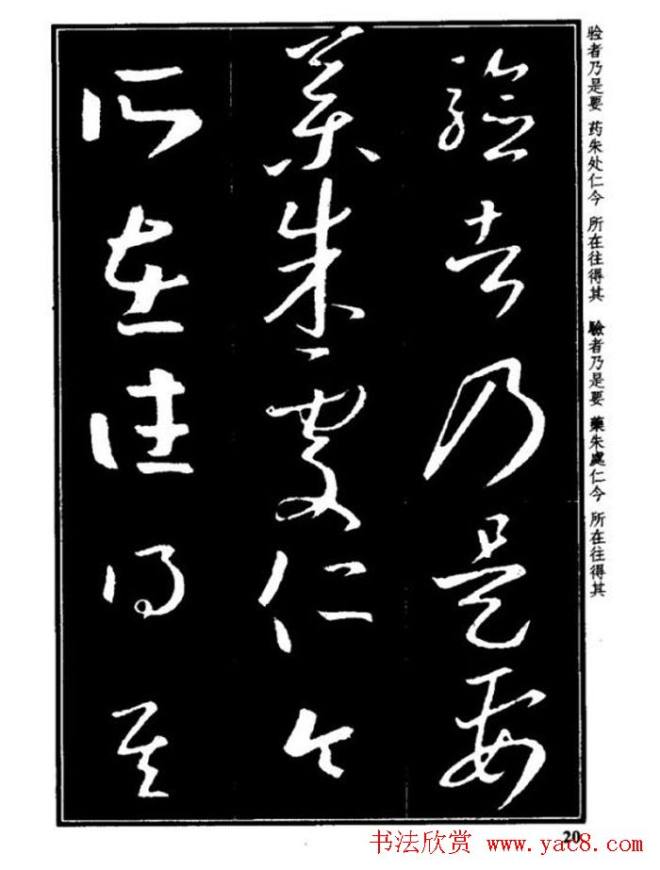 驗者乃是要
藥朱處仁今
所在往得其
验者乃是要 药朱处仁今 所在往得其 驗者乃是要 藥朱處仁今 所在往得其
20
书法欣赏 www.yac8.com